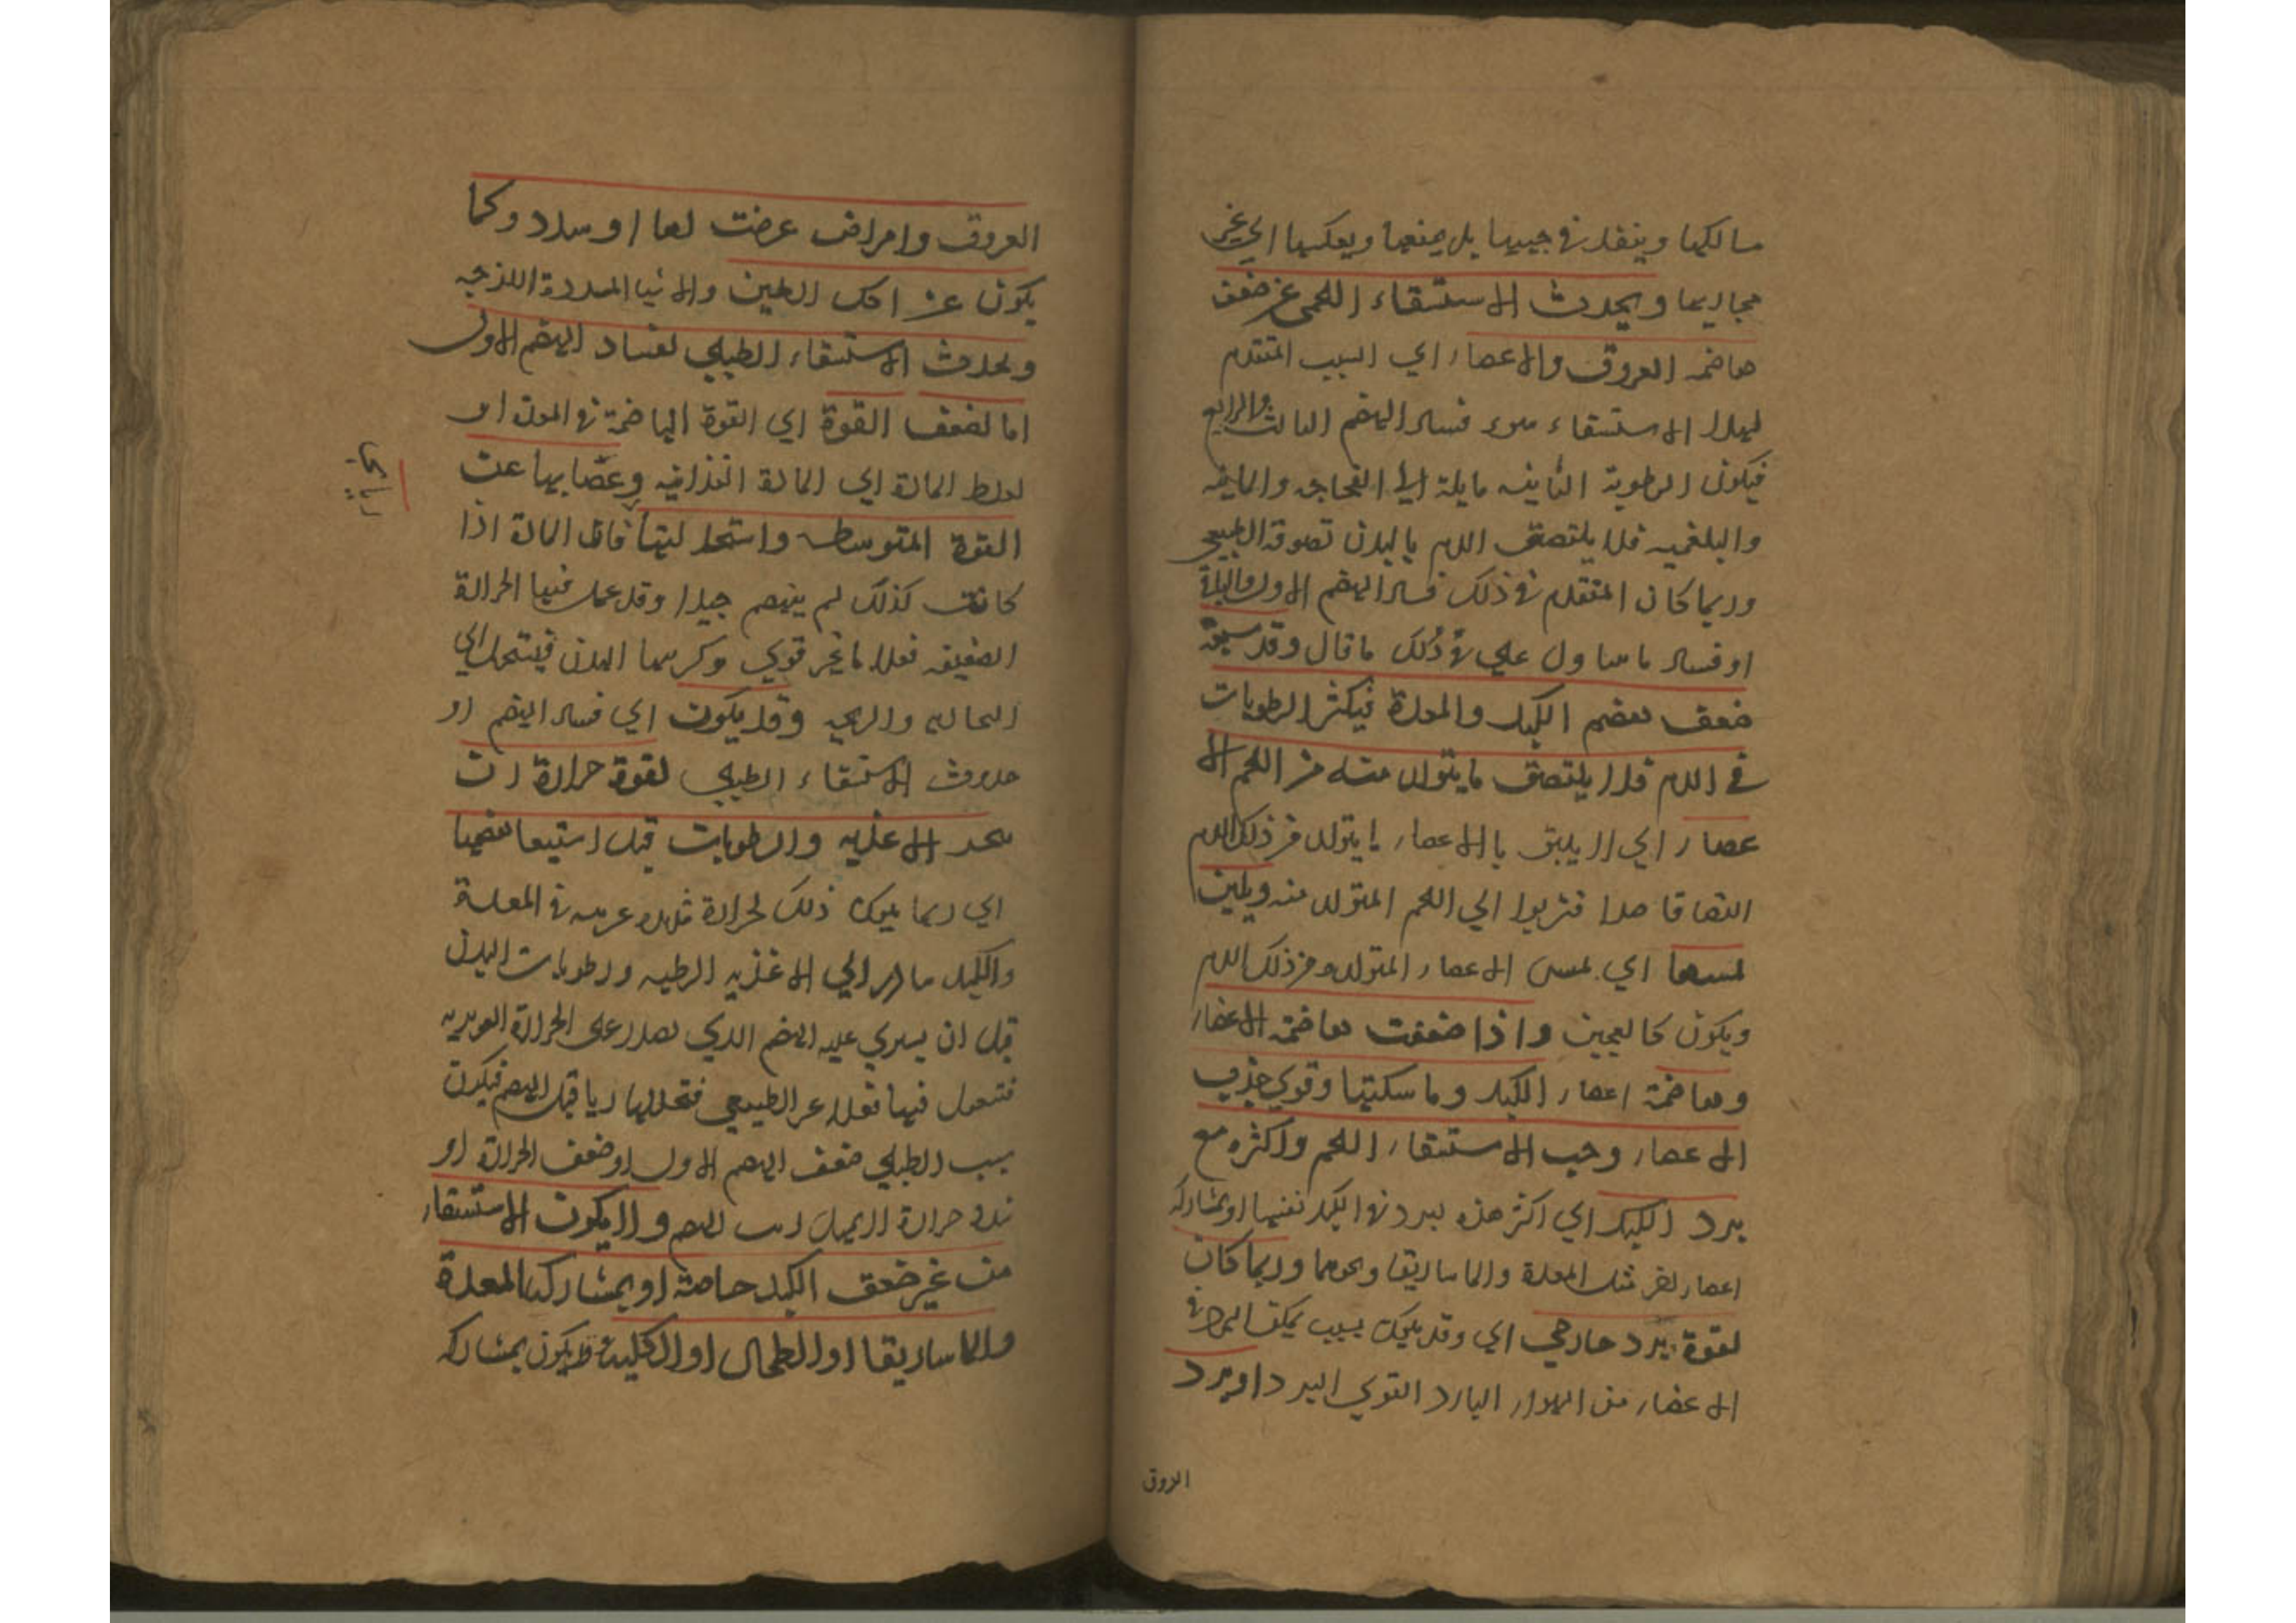 مسالكها وينفذ في جيبها بل يمنعها ويعكسها الي غير
مجاريها ويحدث الاستسقاء اللحمي عن ضعف
هاضمه العروق والاعضاء اي السبب المتقدم
لهذا الاستسقاء هو فساد الهضم الثالث والرابع
فيكون الرطوبة الثانيه مايلة الي الفجاجه والمايه
والبلغميه فلا يلتصق الدم بالبدن لصوقه الطبيعي
وربما كان المتقدم في ذلك فساد الهضم الاول
او فساد ما علي ذلك ما قال وقد سبقه
ضعف هضم الكبد والمعدة فيكثر الرطوبات
في الدم فلا يلتصق ما يتولد منه من اللحم الا
عضاء اي لا يلتزق بالاعضاء ما يتولد من ذلك الدم
التصاقا اي اللحم المتولد منه ويلين
لمسها اي لمس الاعضاء المتولده من ذلك الدم
ويكون كالعجين واذا ضعفت هاضمة الاعضاء
وهاضمة اعضاء الكبد وماسكتها وقوي جذب
الاعضاء وجب الاستسقاء اللحم واكثره مع
برد الكبد اي اكثر هذه لبرد في الكبد نفسها او بمشاركه
اعضاء اخر مثل المعدة والماساريقا ونحوهما وربما كان
لقوة برد خارجي اي وقد يكون بسبب تمكن البرد في
الاعضاء من الهواء البارد القوي البرد او برد
العروق
العروق وامراض عرضت لها او سدد وكما
يكون عن اكل الطين والاشيا المسددة اللزجه
ويحدث الاستسقاء الطبلي لفساد الهضم الاول
اما لضعف القوة اي القوة الهاضمة في المعدة او
لغلط المادة اي المادة الغذائيه وعصيانها عن
القوة المتوسطه واستحالتها فان المادة اذا
كانت كذلك لم ينهضم جيدا وقد عمل فيها الحرارة
الضعيفه فعلا ما غير قوي وكرهها البدن فيستحيل الي
البخاريه والريحيه وقد يكون اي فساد الهضم او
حدوث الاستسقاء الطبلي لقوة حرارة
الاغذيه والرطوبات قبل هضمها
اي ربما يكون ذلك لحرارة شديده غريبه في المعدة
والكبد الي الاغذيه الرطبه ورطوبات البدن
قبل ان يستولي عليه الهضم الذي يصدر عن الحرارة الغريزيه
فتفعل فيها فعلا غير الطبيعي فتحللها رياحا قبل الهضم فيكون
سبب الطبلي ضعف الهضم الاول او ضعف الحرارة او
شدة حرارة لا يمهل الهضم ولا يكون الاستسقاء
من غير ضعف الكبد خاصة او بمشاركه المعدة
والماساريقا او الطحال او الكليه ويكون بمشاركه